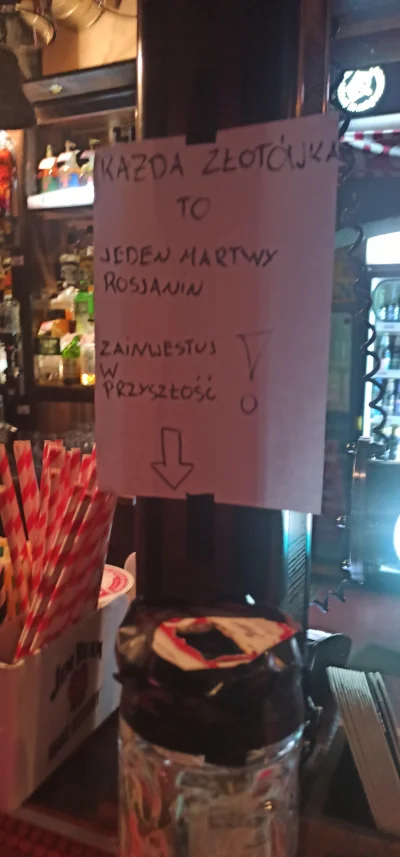 KAŻDA ZŁOTÓWKA
TO
JEDEN MARTWY
ROSJANIN
ZAINWESTUJ
W
PRZYSZŁOŚĆ
!
JIM BEAM